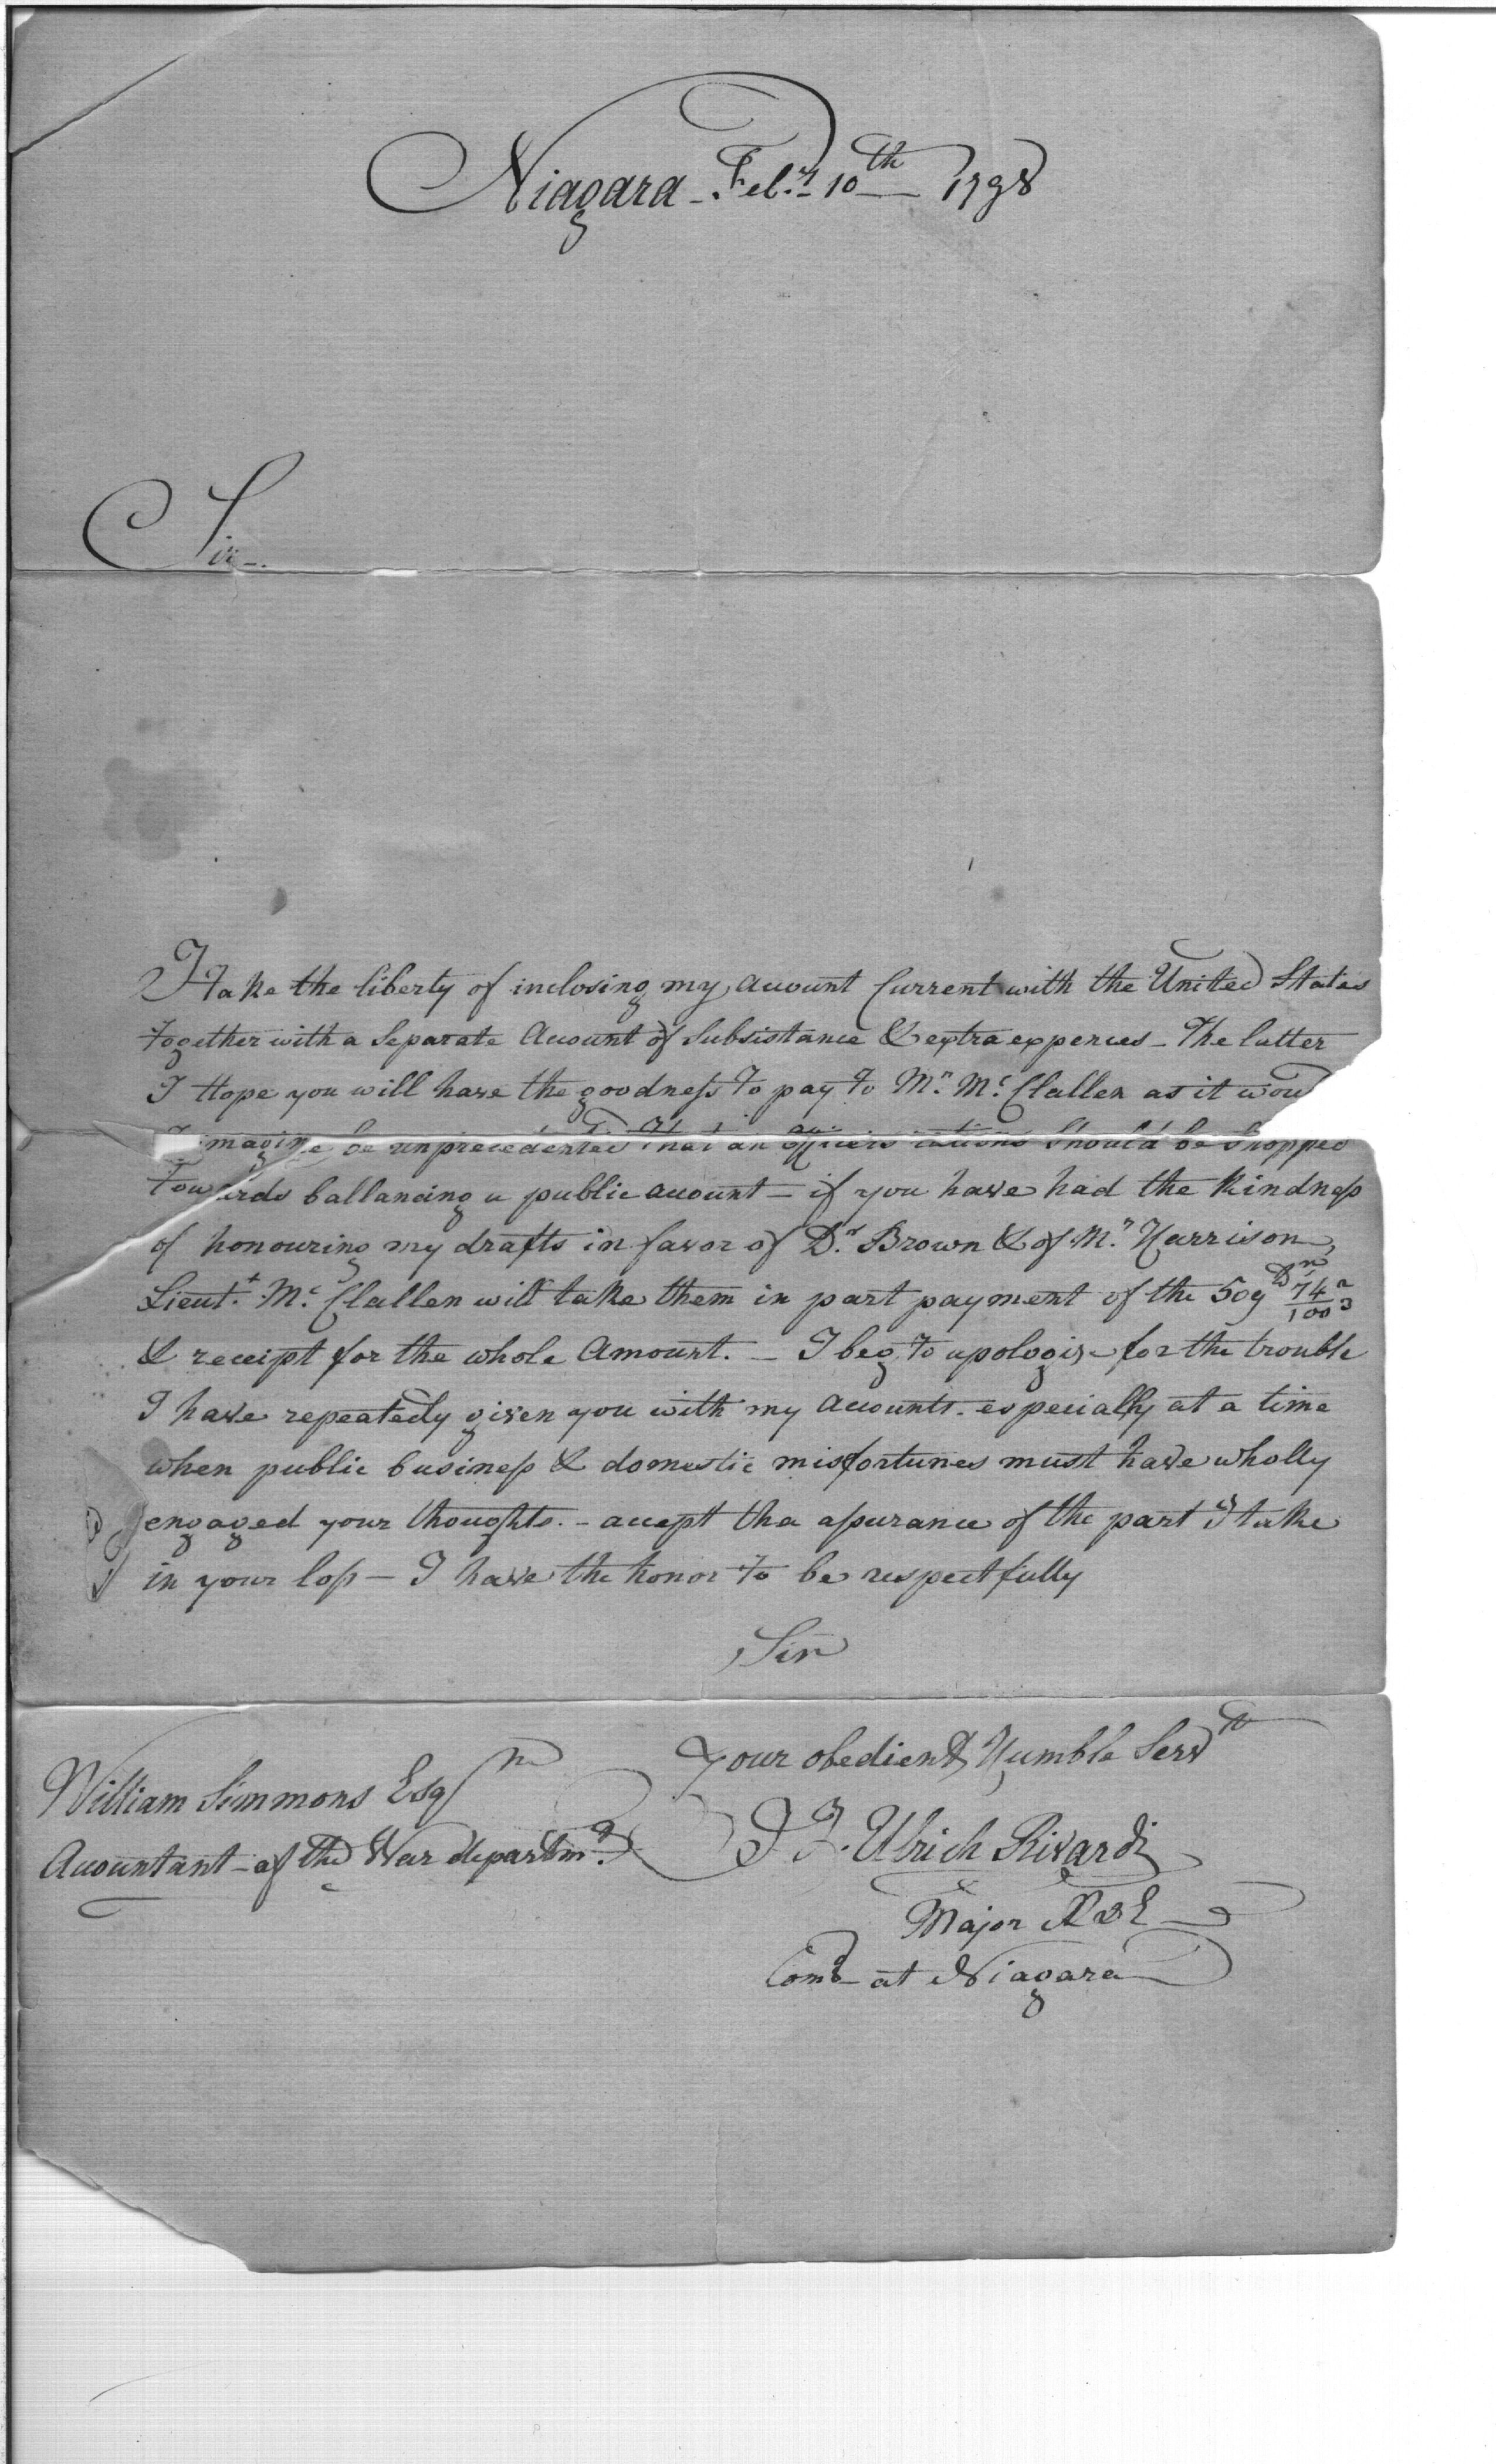 Niagara - Feb.y 10th 1798
Sir -.
I take the liberty of inclosing my account Current with the United States
together with a Separate Account of Subsistance & extra expences - The latter
I Hope you will have the goodness to pay to Mr. Mc. Clallen as it wou'd
I imagine be unprecedented that an officers rations should be stopped
towards ballancing a public account - if you have had the kindness
of honouring my drafts in favor of Dr. Brown & of Mr. Harrison,
Lieut.t Mc. Clallen will take them in part payment of the 509 Drs 74/100
& receipt for the whole Amount. - I beg to apologise for the trouble
I have repeatedly given you with my accounts - especially at a time
when public business & domestic misfortunes must have wholly
engaged your thoughts. - accept the assurance of the part I take
in your loss - I have the honor to be respectfully
Sir
Your obedient Humble Servt
William Simmons Esqr
J J. Ulrich Rivardi
Accountant - of the War departmt.
Major A & E
Comd - at Niagara